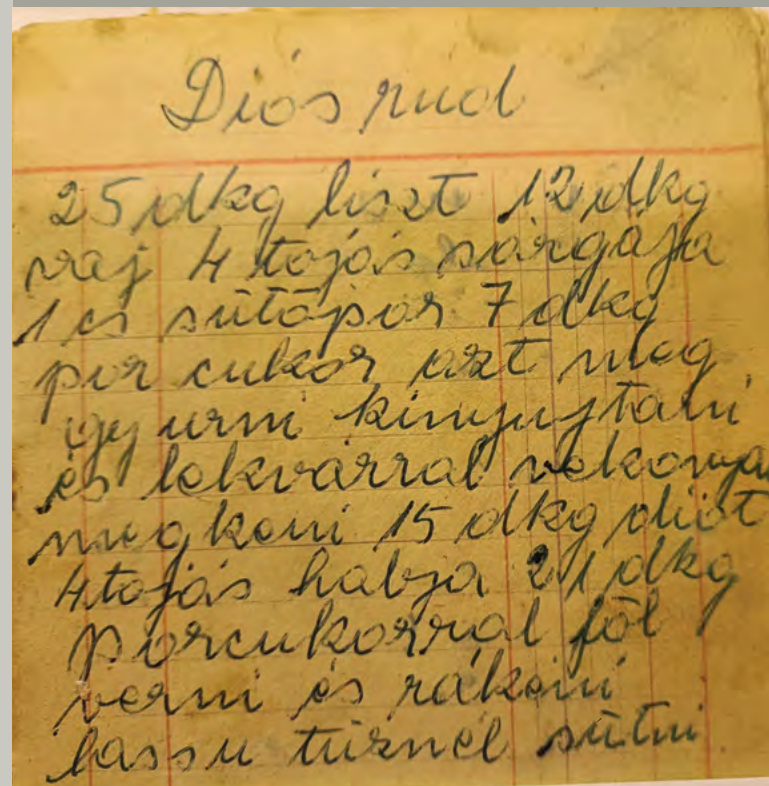 Diós rud
25 dkg liszt 12 dkg
vaj 4 tojás sárgája
1 cs sütőpor 7 dkg
por cukor azt meg
gyurni kinyujtani
és lekvárral vékonyan
megkeni 15 dkg diót
4 tojás habja 21 dkg
porcukorral föl
verni és rákeni
lassu tüznél sütni